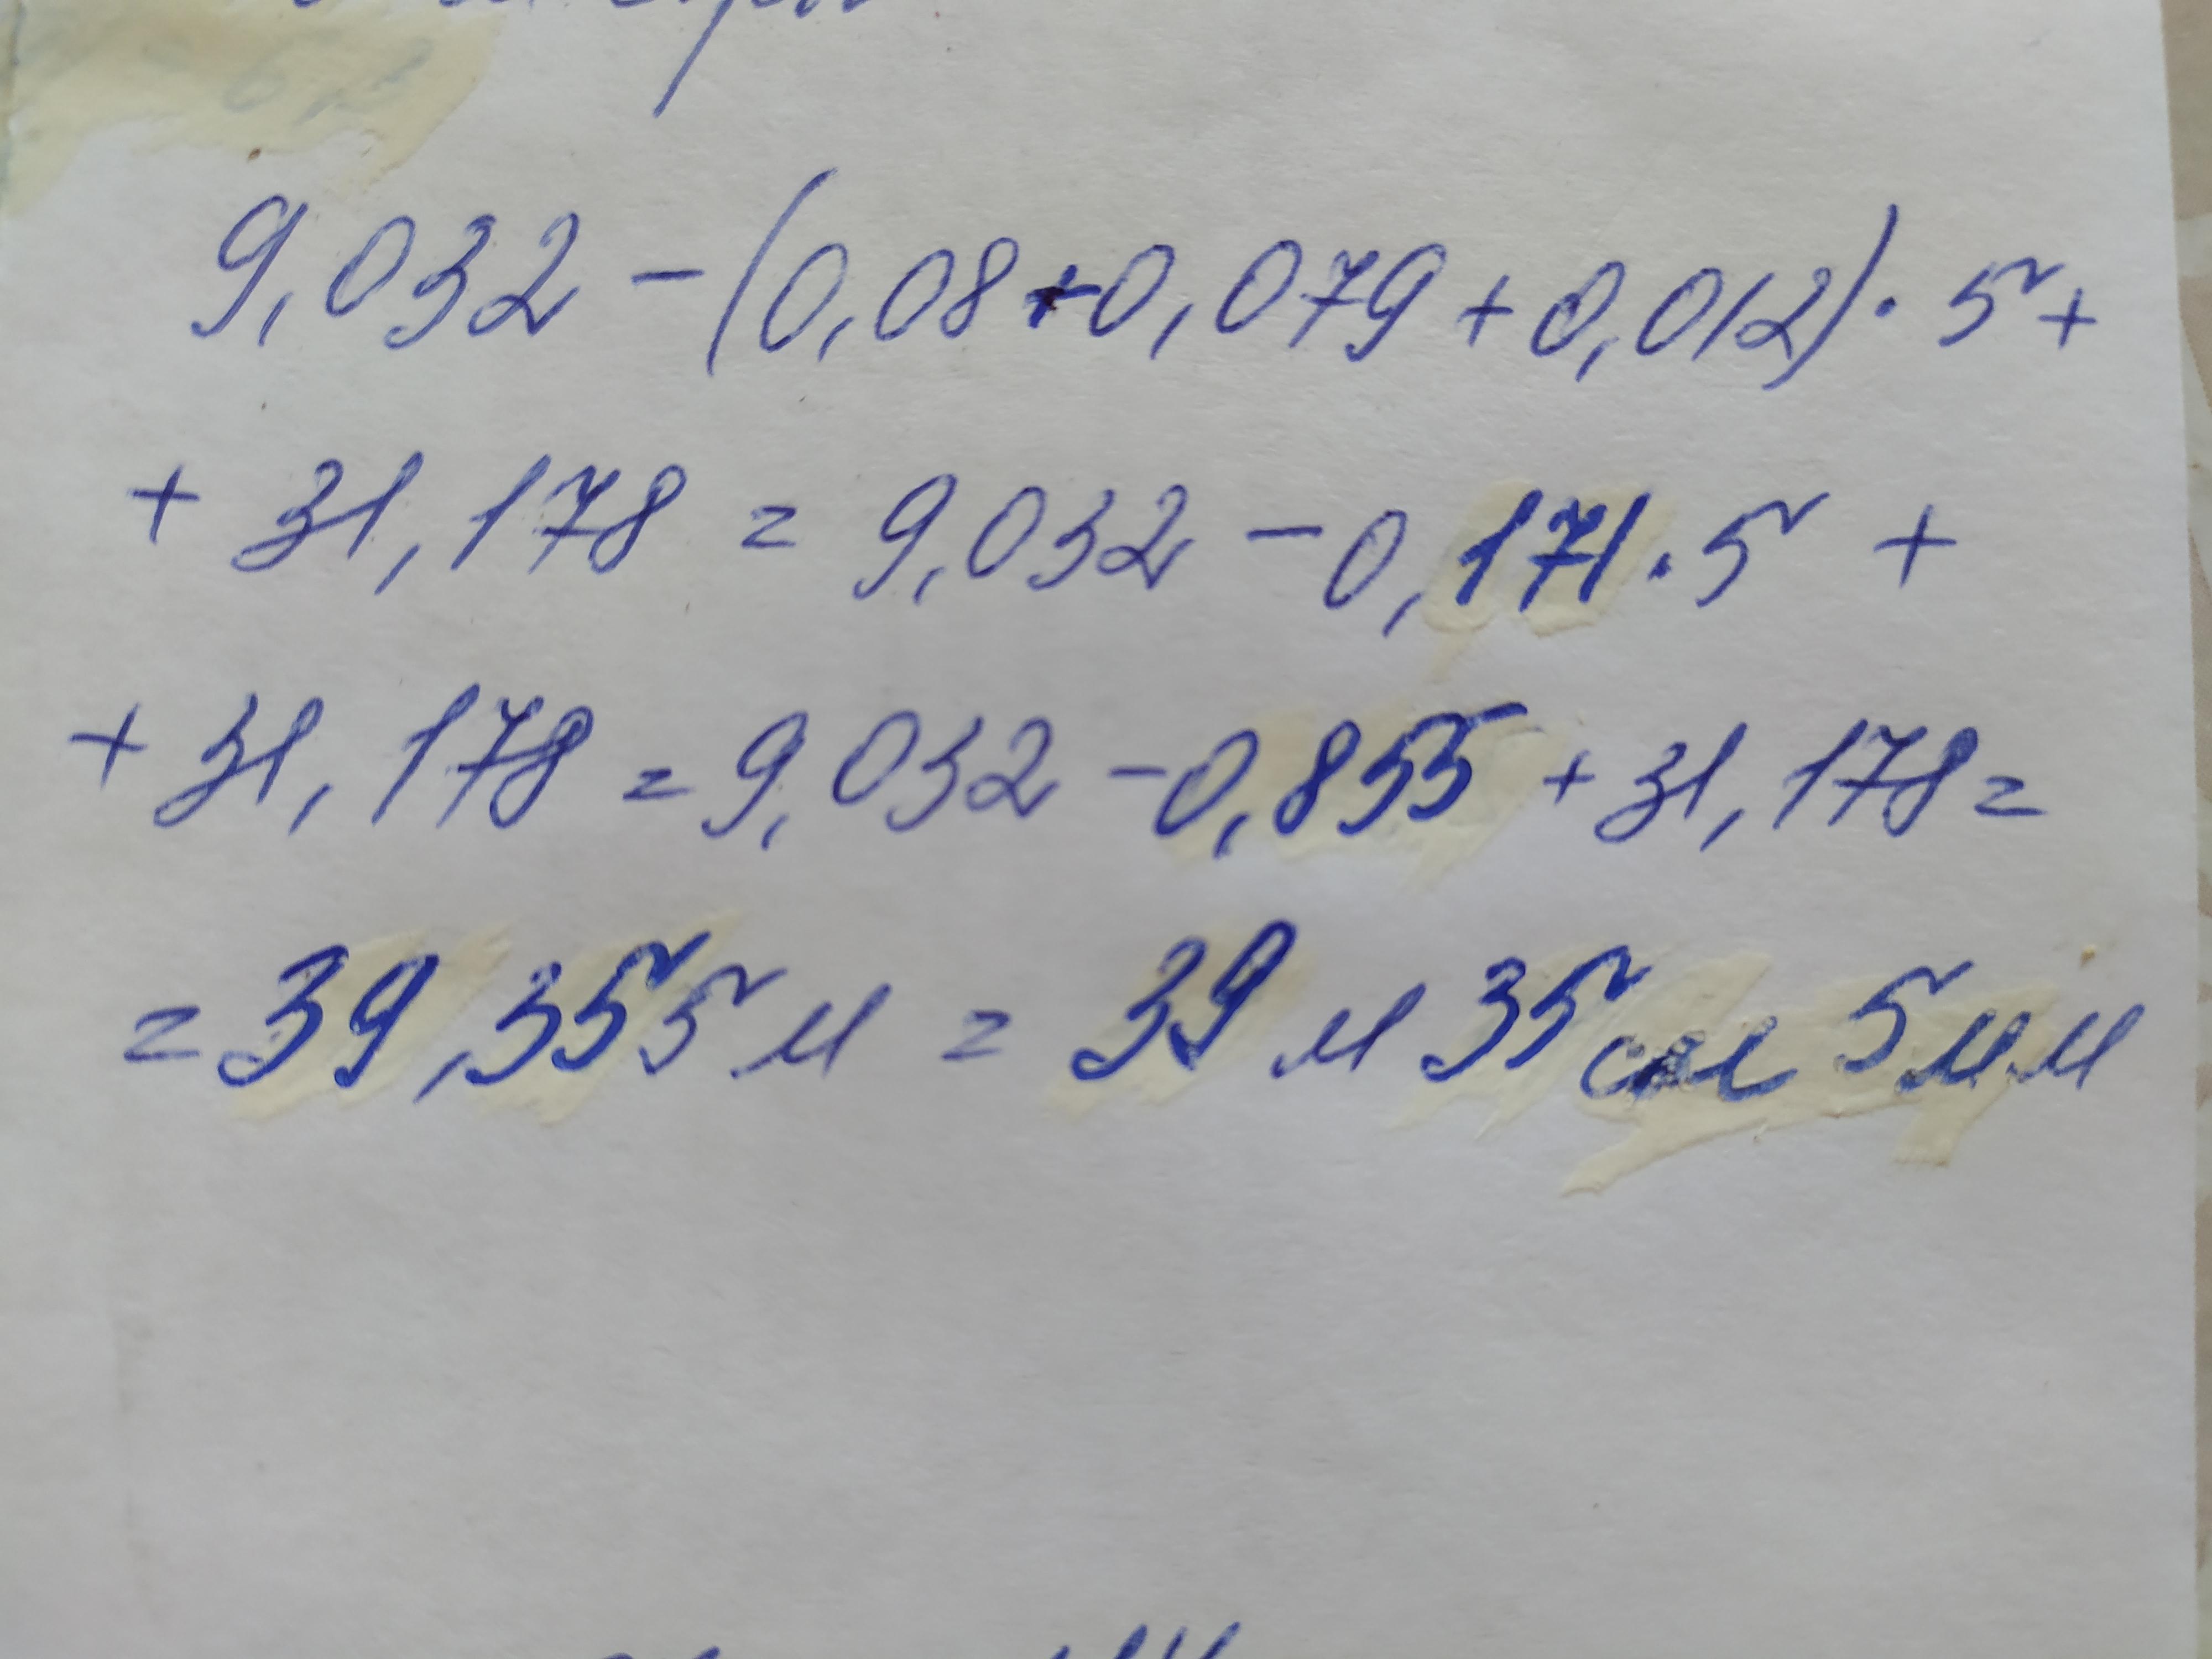 9,032 - (0,08 + 0,079 + 0,012) · 5 +
+ 31,178 = 9,032 - 0,171 · 5 +
+ 31,178 = 9,032 - 0,855 + 31,178 =
= 39,355 м = 39 м 35 см 5 мм